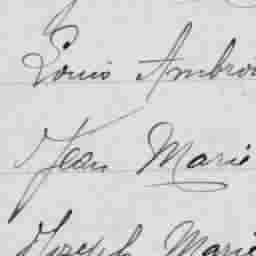 Louis Ambroi
Jean Marie
Joseph Marie